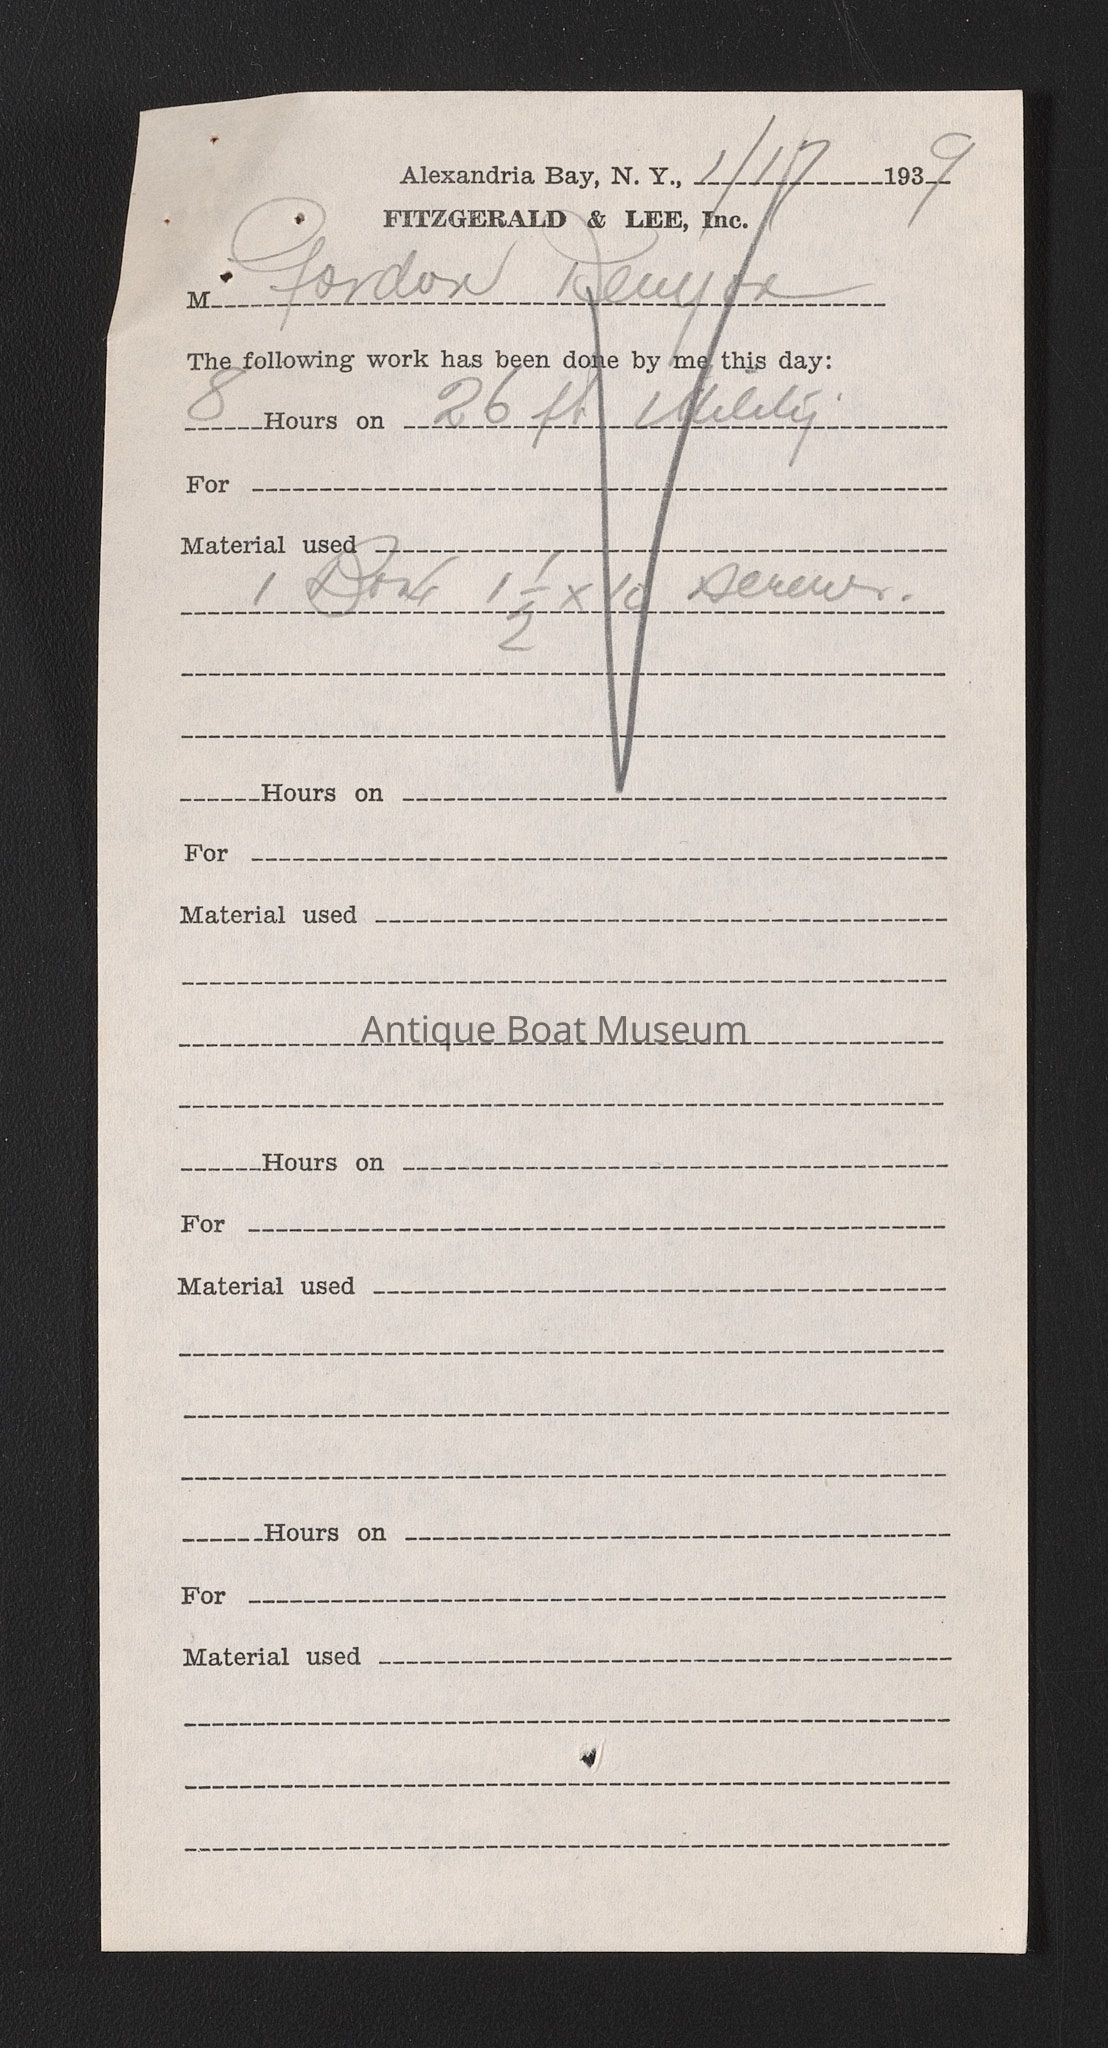 Alexandria Bay, N. Y., 1/17 1939
FITZGERALD & LEE, Inc.
M Gordon Kenyon
The following work has been done by me this day:
8 Hours on 26 ft Utility
For
Material used
1 Doz 1 1/2 x 10 screws.
Hours on
For
Material used
Antique Boat Museum
Hours on
For
Material used
Hours on
For
Material used